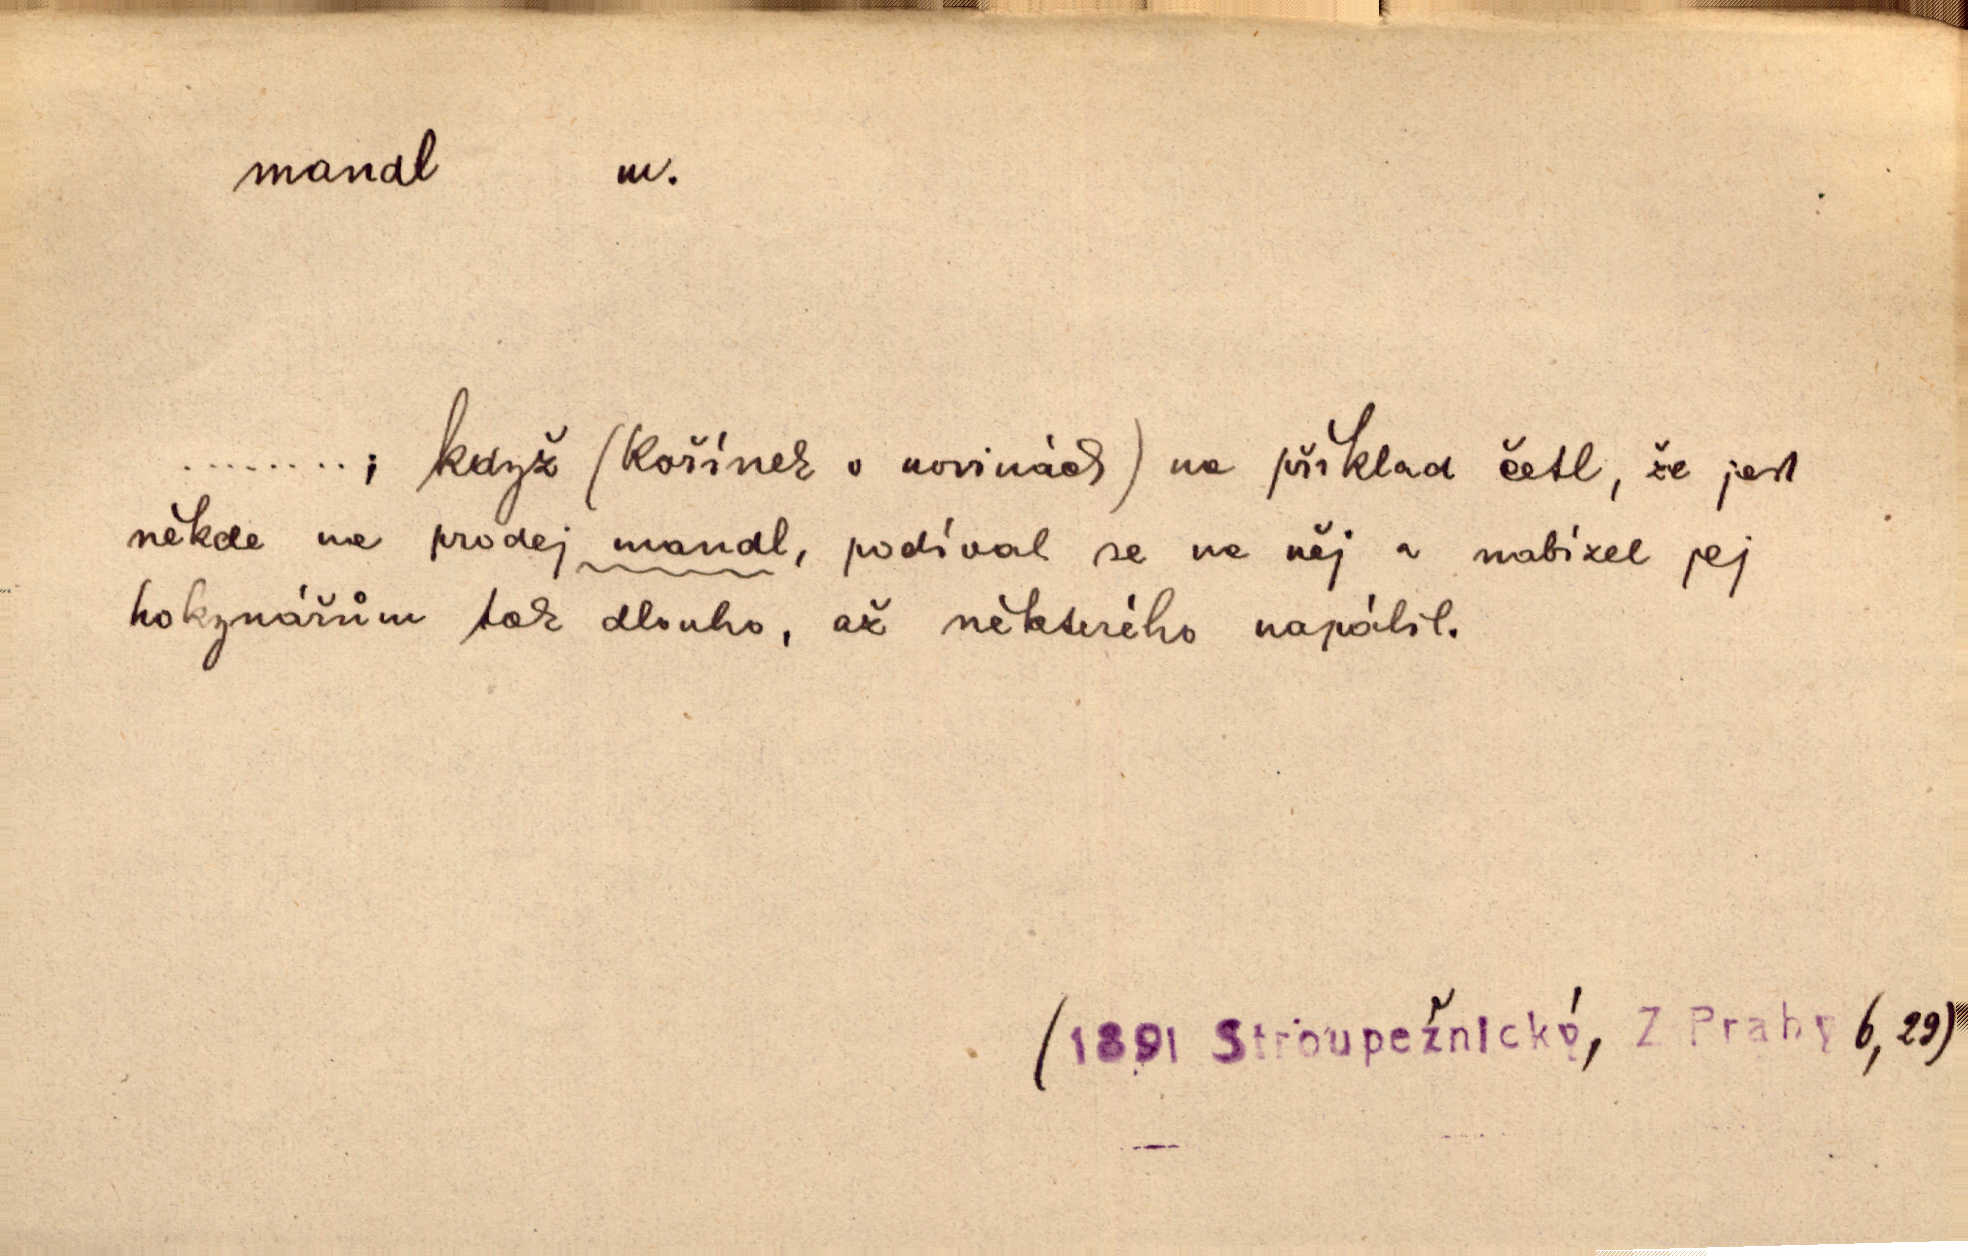 mandl m.
........; když (Kořínek v novinách) na příklad četl, že jest
někde na prodej mandl, podíval se na něj a nabízel jej
hokynářům tak dlouho, až některého napálil.
(1891 Stroupežnický, Z Prahy 6, 29)